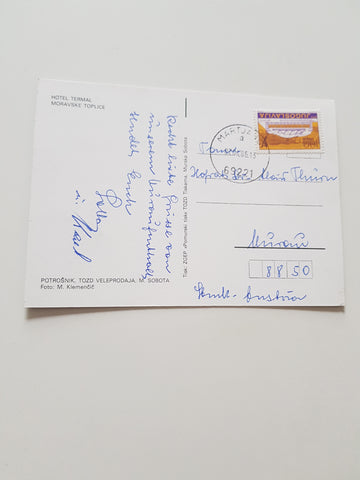 HOTEL TERMAL
MORAVSKE TOPLICE
Recht liebe Grüsse von
unserem Kuraufenthalt
sendet Euch
u. Karl
POTROŠNIK, TOZD VELEPRODAJA, M. SOBOTA
Foto: M. Klemenčič
Tisk: ZGEP »Pomurski tisk« TOZD Tiskarna Murska Sobota
JUGOSLAVIJA
MARTJANCI
69221
Familie
Thurn
Murau
8850
Austria